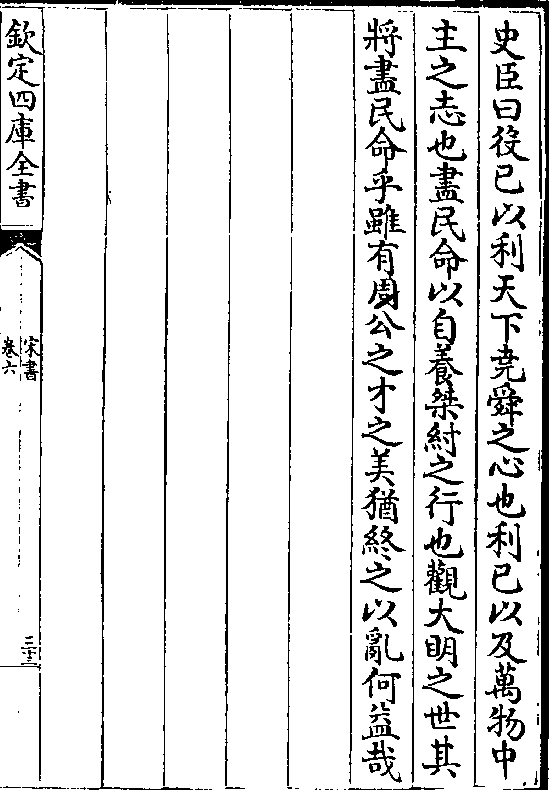 史臣曰役己以利天下堯舜之心也利己以及萬物中
主之志也盡民命以自養桀紂之行也觀大明之世其
將盡民命乎雖有周公之才之美猶終之以亂何益哉
欽定四庫全書
宋書
卷六
三十三